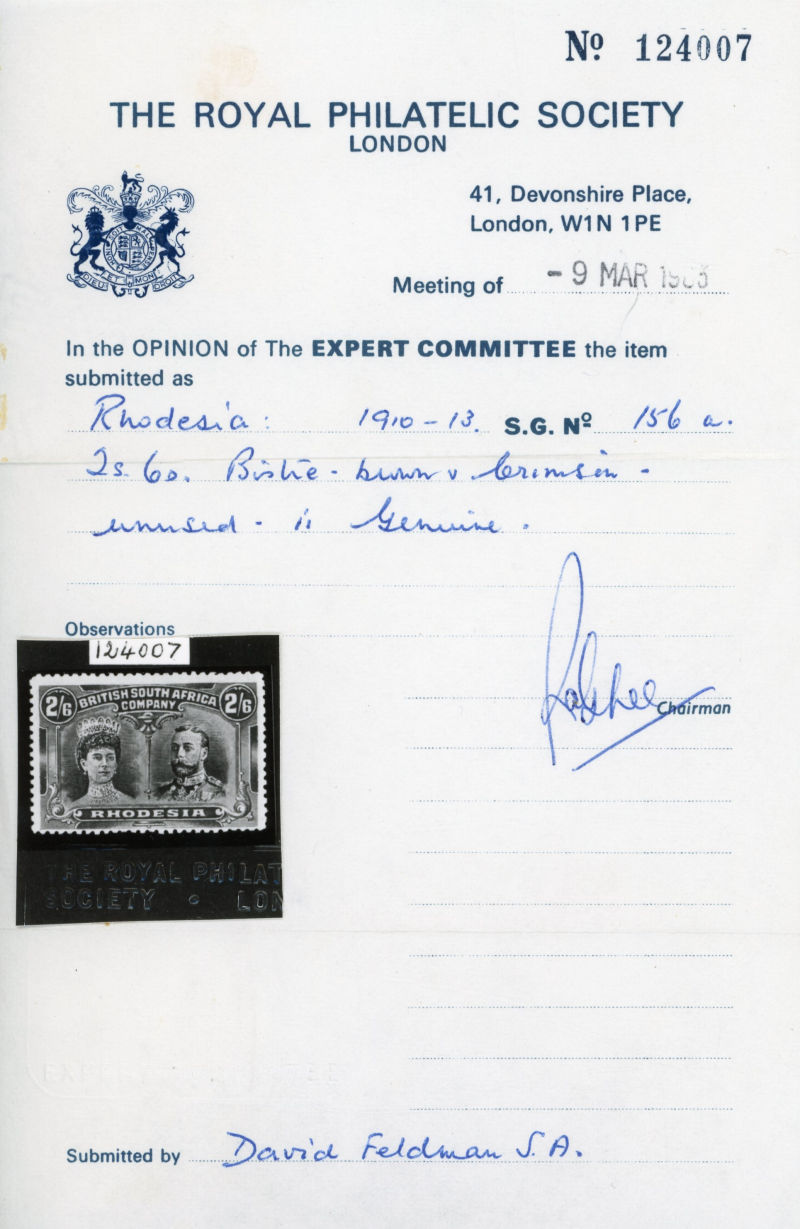 Nº 124007
THE ROYAL PHILATELIC SOCIETY
LONDON
41, Devonshire Place,
London, W1N 1PE
Meeting of - 9 MAR
In the OPINION of The EXPERT COMMITTEE the item
submitted as
Rhodesia: 1910-13. S.G. Nº 156 a.
2s. 6d. Bistre-brown & Crimson -
unused - is Genuine.
Observations
124007
2/6 BRITISH SOUTH AFRICA 2/6
COMPANY
RHODESIA
THE ROYAL PHILAT
SOCIETY • LON
Chairman
Submitted by David Feldman S.A.